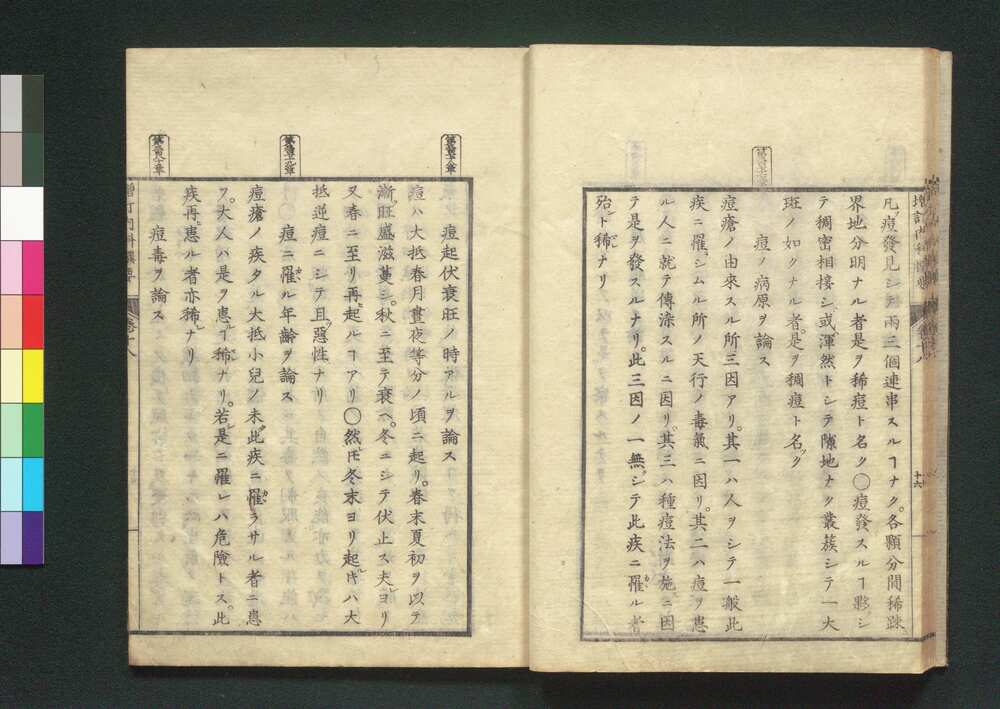 凡ソ痘發見シテ兩三個連串スルヿナク。各顆分間稀疎
界地分明ナル者是ヲ稀痘ト名ク〇痘發スルヿ夥シ
テ稠密相接シ或渾然トシテ隙地ナク叢簇シテ一大
斑ノ如クナル者。是ヲ稠痘ト名ク
痘ノ病原ヲ論ス
痘瘡ノ由來スル所三因アリ。其一ハ人ヲシテ一般此
疾ニ罹ラシムル所ノ天行ノ毒氣ニ因リ。其二ハ痘ヲ患
ル人ニ就テ傳染スルニ因リ。其三ハ種痘法ヲ施スニ因
テ是ヲ發スルナリ。此三因ノ一無シテ此疾ニ罹ル者
殆ト稀ナリ
痘起伏衰旺ノ時アルヲ論ス
痘ハ大抵春月晝夜等分ノ頃ニ起リ。春末夏初ヲ以テ
漸ク旺盛滋蔓シ。秋ニ至テ衰ヘ。冬ニシテ伏止ス夫ヨリ
又春ニ至リ再起ルヿアリ〇然𪜈冬末ヨリ起レハ大
抵逆痘ニシテ且ツ惡性ナリ
痘ニ罹ル年齡ヲ論ス
痘瘡ノ疾タル大抵小兒ノ未此疾ニ罹ラサル者ニ患
フ。大人ハ是ヲ患ルヿ稀ナリ。若是ニ罹レハ危險トス。此
疾再患ル者亦稀ナリ
痘毒ヲ論ス